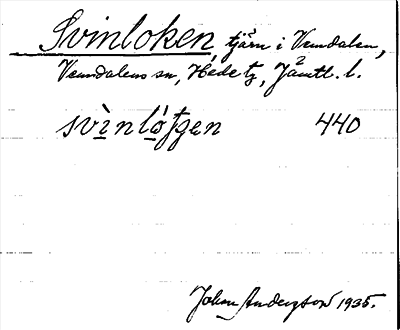 Svinloken, tjärn i Vemdalen,
Vemdalens sn, Hede tg, Jämtl. l.
svìnlò̱tgen 440
Johan Anderzson 1935.